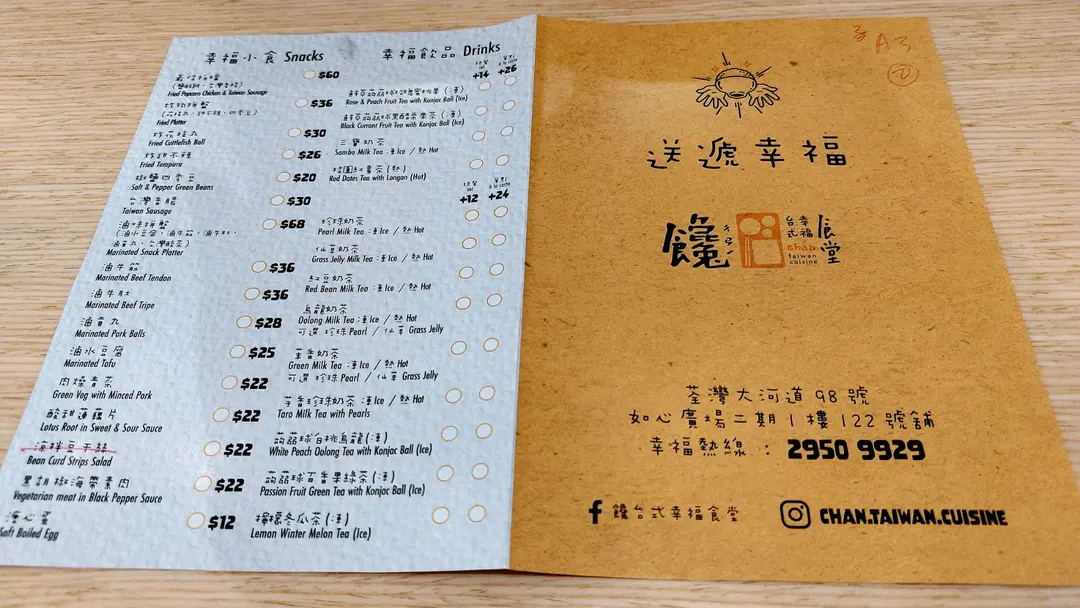 幸福小食 Snacks
$60
Fried Popcorn Chicken & Taiwan Sausage
炸物拼盤
$36
Fried Platter
炸花枝丸
$30
Fried Cuttlefish Ball
炸甜不辣
$26
Fried Tempura
椒鹽四季豆
$20
Salt & Pepper Green Beans
台灣香腸
$30
Taiwan Sausage
滷味拼盤
$68
Marinated Snack Platter
滷牛筋
$36
Marinated Beef Tendon
滷牛肚
$36
Marinated Beef Tripe
滷貢丸
$28
Marinated Pork Balls
滷水豆腐
$25
Marinated Tofu
肉燥青菜
$22
Green Veg with Minced Pork
酸甜蓮藕片
$22
Lotus Root in Sweet & Sour Sauce
涼拌豆干絲
$22
Bean Curd Strips Salad
黑胡椒海帶素肉
$22
Vegetarian meat in Black Pepper Sauce
溏心蛋
$12
Soft Boiled Egg
幸福飲品 Drinks
+14
+26
Rose & Peach Fruit Tea with Konjac Ball (Ice)
Black Currant Fruit Tea with Konjac Ball (Ice)
三寶奶茶
Sambo Milk Tea :凍Ice / 熱 Hot
桂圓紅棗茶 (熱)
Red Dates Tea with Longan (Hot)
+12
+24
珍珠奶茶
Pearl Milk Tea :凍Ice / 熱 Hot
仙草奶茶
Grass Jelly Milk Tea :凍Ice / 熱 Hot
紅豆奶茶
Red Bean Milk Tea :凍Ice / 熱 Hot
烏龍奶茶
Oolong Milk Tea :凍Ice / 熱 Hot
可選 珍珠 Pearl / 仙草 Grass Jelly
茉香奶茶
Green Milk Tea :凍Ice / 熱 Hot
可選 珍珠 Pearl / 仙草 Grass Jelly
芋香珍珠奶茶 :凍Ice / 熱 Hot
Taro Milk Tea with Pearls
蒟蒻球白桃烏龍(凍)
White Peach Oolong Tea with Konjac Ball (Ice)
蒟蒻球百香果綠茶(凍)
Passion Fruit Green Tea with Konjac Ball (Ice)
檸檬冬瓜茶(凍)
Lemon Winter Melon Tea (Ice)
A3
送遞幸福
饞
ㄔㄢˊ
台式幸福食堂
chan
taiwan
cuisine
荃灣大河道98號
如心廣場二期1樓122號舖
幸福熱線 : 2950 9929
饞台式幸福食堂
CHAN.TAIWAN.CUISINE